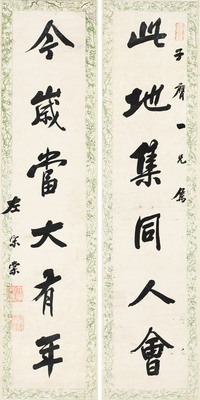 此地集同人會
子齊一兄屬
今歲當大有年
左宗棠